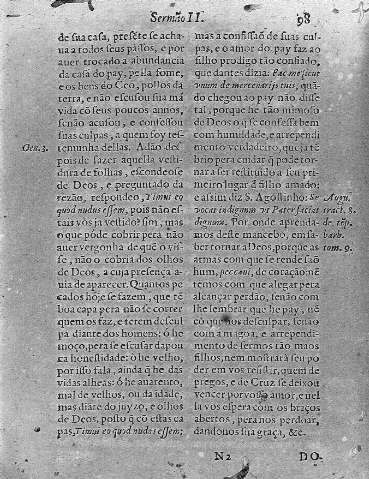 Sermão II.
98
de sua casa, presẽte se acha-
ua a todos seus passos, e por
auer trocado a abundancia
da casa do pay, pella fome,
e os bens do Ceo, pollos da
terra, e não escusou sua má
vida cõ seus poucos annos,
senão acusou, e confessou
suas culpas, a quem foy tes-
temunha dellas. Adão des-
Gen. 3.
pois de fazer aquella vesti-
dura de folhas, escondeose
de Deos, e preguntado da
rezão, respondeo, Timui eo
quod nudus essem, pois não es-
tais vós ja vestido? sim, mas
o que pode cobrir pera não
auer vergonha de quẽ o vis-
se, não o cobria dos olhos
de Deos, a cuja presença a-
uia de aparecer. Quantos pe-
cados hoje se fazem, que tẽ
boa capa pera não se correr
quem os faz, e terem descul
pa diante dos homens: ô he
moço, pera se escusar da pou
ca honestidade: ô he velho,
por isso fala, ainda que he das
vidas alheas: ô he auarento,
mal de velhos, ou da idade,
mas diãte do juyzo, e olhos
de Deos, posto que cõ estas ca
pas, Timui eo quod nudus essem;
mas a confissão de suas cul-
pas, e o amor do pay faz ao
filho prodigo tão confiado,
que dantes dizia:
vnum de mercenarijs tuis, quã-
do chegou ao pay não disse
tal, porque he tão mimoso
de Deos o que se confessa bem
com humildade, e arrependi
mento verdadeiro, que ja tẽ
brio pera cuidar que pode tor-
nara ser restituido a seu pri-
meiro lugar de filho amado:
e assim diz S. Agostinho:
Augu.
vocor indignum vt Pater faciat
tract. 8.
dignum. Por onde aprenda-
de tẽp.
mos deste mancebo, em sa-
barb.
ber tornar a Deos, porque as
tom. 9.
armas com que se rende são
hum, peccaui, de coração: nẽ
temos com que alegar pera
alcançar perdão, senão com
lhe lembrar que he pay, nẽ
cõ que nos desculpar, senão
com a magoa, e arrependi-
mento de sermos tão maos
filhos, nem mostrará seu po
der em vos resistir, quem de
pregos, e de Cruz se deixou
vencer por vosso amor, e nel
la vos espera com os braços
abertos, pera nos perdoar,
dandonos sua graça, &c.
N 2
DO-